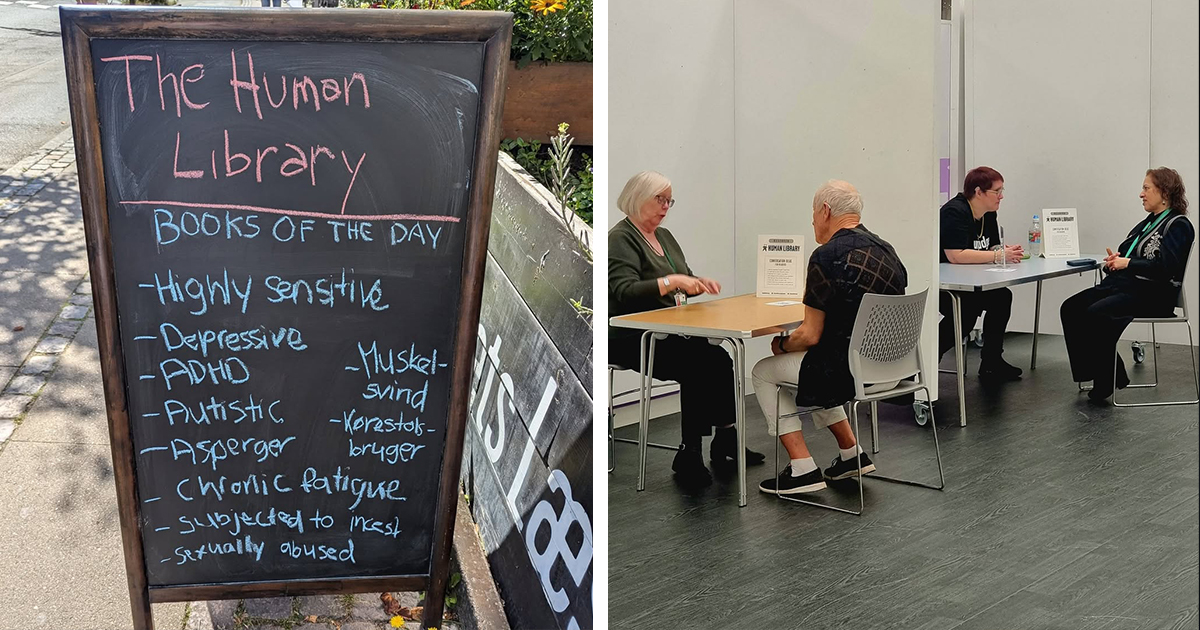 The Human
Library
BOOKS OF THE DAY
-Highly sensitive
-Depressive
-ADHD
-Autistic
-Asperger
-Muskel-
svind
-Kørestols-
bruger
-chronic fatigue
-subjected to incest
-sexually abused
HUMAN LIBRARY
HUMAN LIBRARY